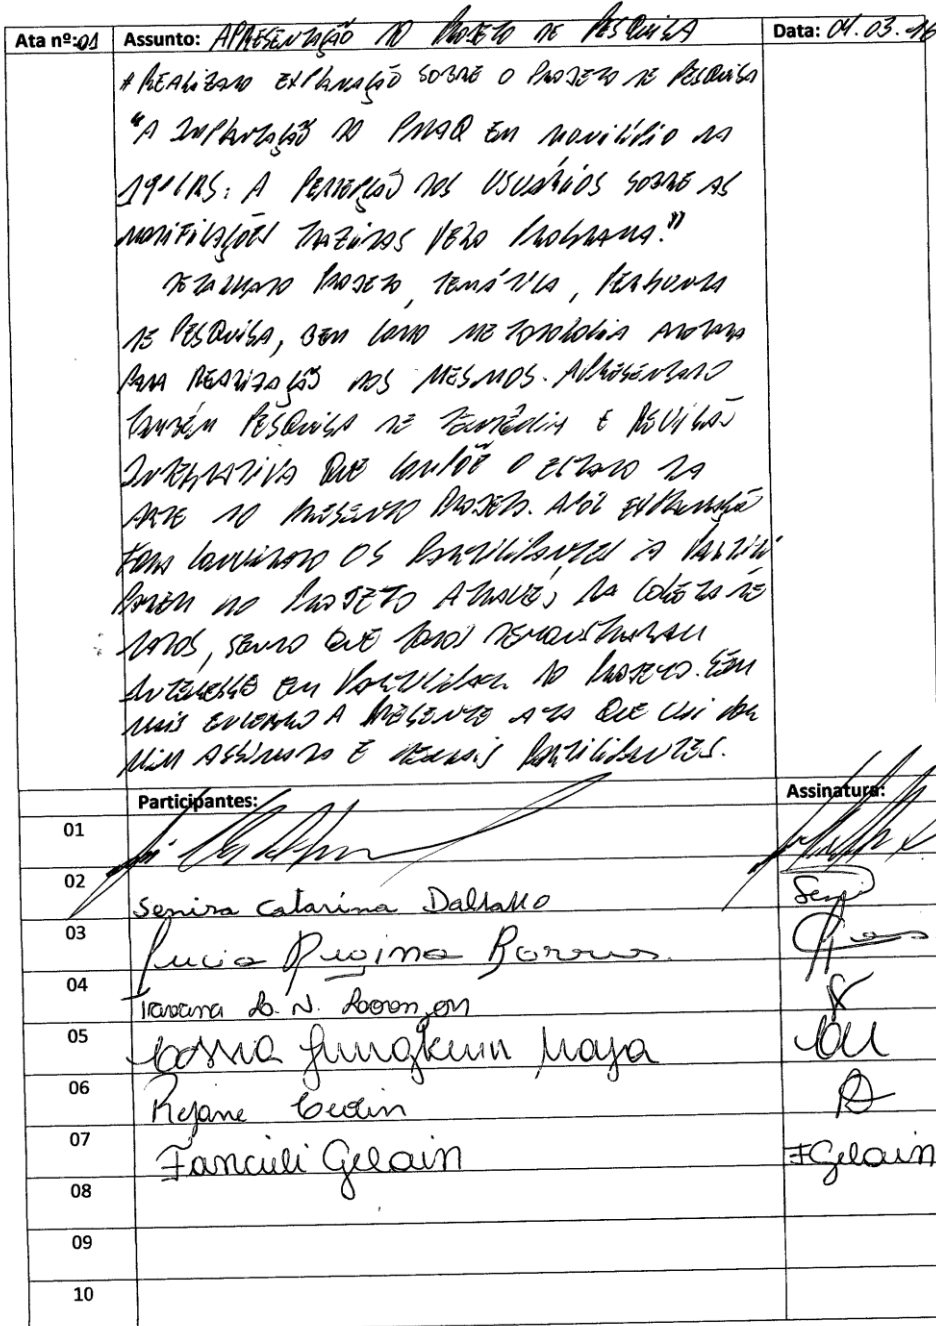 Ata nº: 01 Assunto: APRESENTAÇÃO DO PROJETO DE PESQUISA Data: 04.03.16
# REALIZADO EXPLANAÇÃO SOBRE O PROJETO DE PESQUISA
"A IMPLANTAÇÃO DO PMAQ EM MUNICÍPIO DA
19ª CRS: A PERCEPÇÃO DOS USUÁRIOS SOBRE AS
MODIFICAÇÕES TRAZIDAS PELO PROGRAMA."
DETALHADO PROJETO, TEMÁTICA, PERGUNTA
DE PESQUISA, BEM COMO METODOLOGIA ADOTADA
PARA REALIZAÇÃO DOS MESMOS. APRESENTADO
TAMBÉM PESQUISA DE TENDÊNCIA E REVISÃO
INTEGRATIVA QUE COMPÕE O ESTADO DA
ARTE DO PRESENTE PROJETO. APÓS EXPLANAÇÃO
FORA CONVIDADO OS PARTICIPANTES A PARTICI
PAREM DO PROJETO ATRAVÉS DA COLETA DE
DADOS, SENDO QUE TODOS DEMONSTRARAM
INTERESSE EM PARTICIPAR DO PROJETO. SEM
MAIS ENCERRO A PRESENTE ATA QUE VAI POR
MIM ASSINADA E DEMAIS PARTICIPANTES.
Participantes: Assinatura:
01
02 Senira Catarina
03 Lucia Regina Borges
04
05 Jungkuin Maya
06 Rejane
07 Franciéli Gelain FGelain
08
09
10